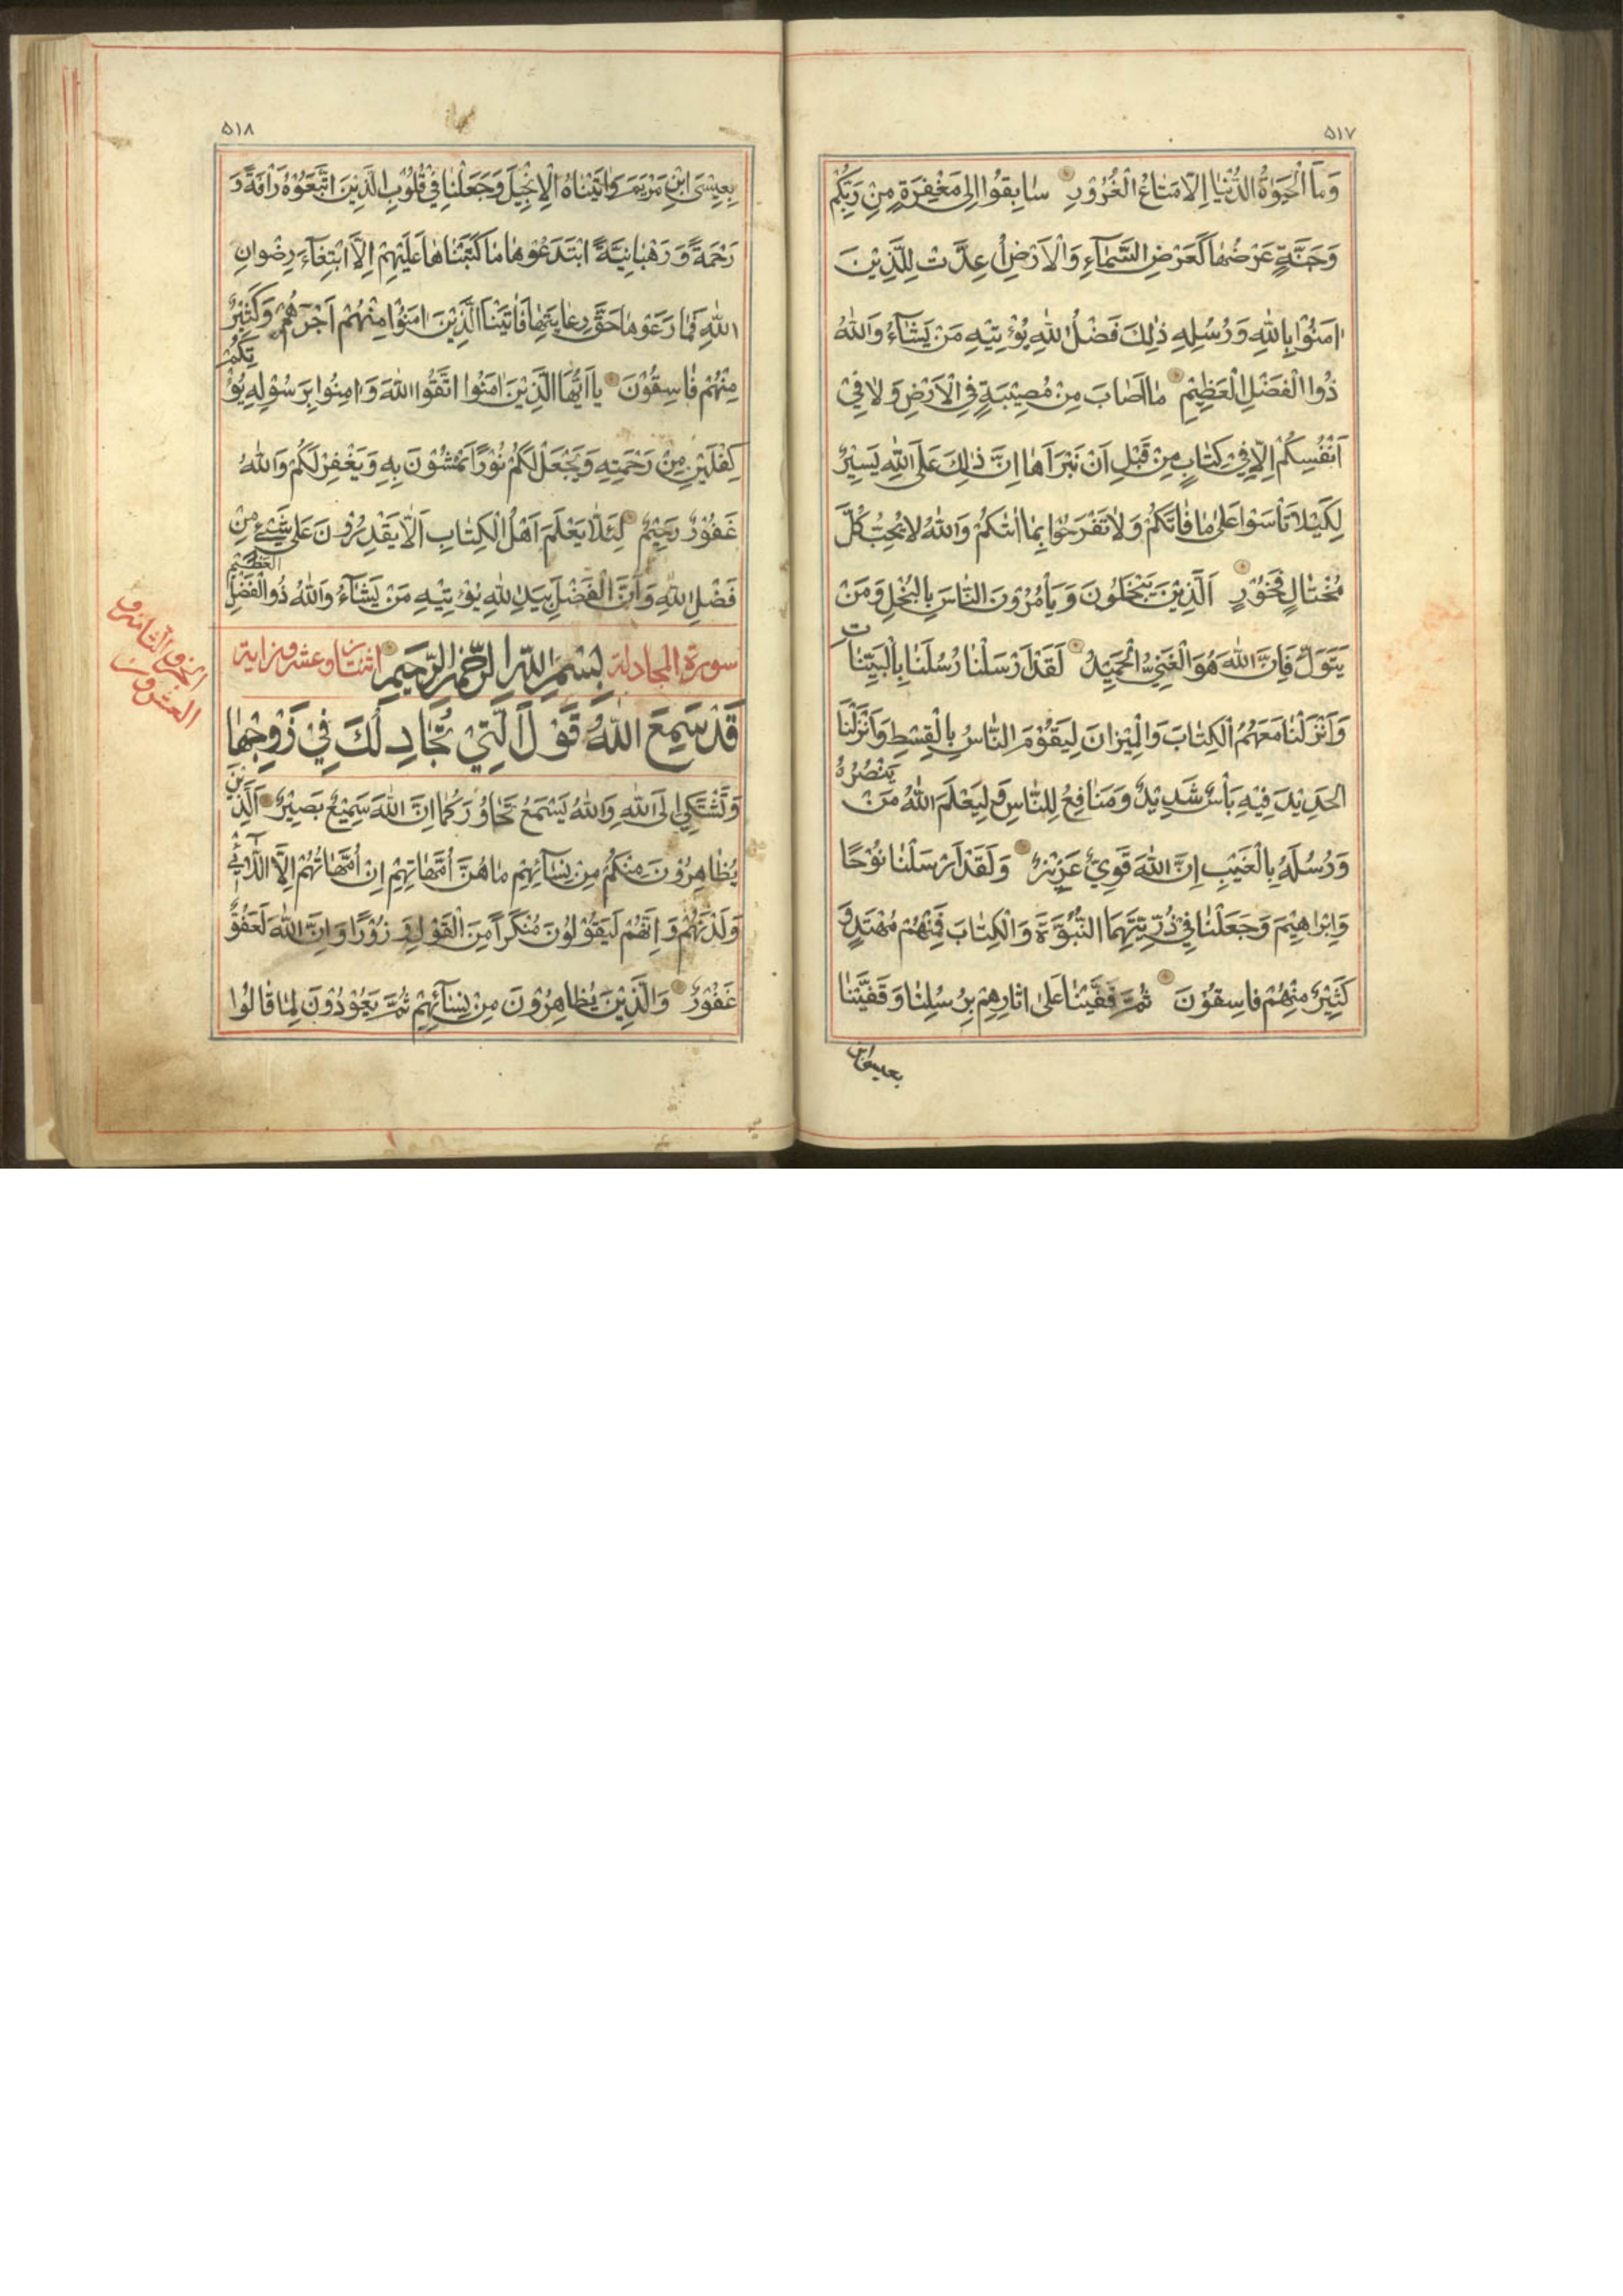 ۵۱۷
وَمَا الْحَيٰوةُ الدُّنْيَا اِلَّا مَتَاعُ الْغُرُوْرِ سَابِقُوا اِلٰى مَغْفِرَةٍ مِنْ رَبِّكُمْ
وَجَنَّةٍ عَرْضُهَا كَعَرْضِ السَّمَآءِ وَالْاَرْضِ اُعِدَّتْ لِلَّذِيْنَ
اٰمَنُوْا بِاللّٰهِ وَرُسُلِهِ ذٰلِكَ فَضْلُ اللّٰهِ يُؤْتِيْهِ مَنْ يَشَآءُ وَاللّٰهُ
ذُوا الْفَضْلِ الْعَظِيْمِ مَا اَصَابَ مِنْ مُصِيْبَةٍ فِي الْاَرْضِ وَلَا فِيْ
اَنْفُسِكُمْ اِلَّا فِيْ كِتَابٍ مِنْ قَبْلِ اَنْ نَبْرَاَهَا اِنَّ ذٰلِكَ عَلَى اللّٰهِ يَسِيْرٌ
لِكَيْلَا تَاْسَوْا عَلٰى مَا فَاتَكُمْ وَلَا تَفْرَحُوْا بِمَا اٰتٰكُمْ وَاللّٰهُ لَا يُحِبُّ كُلَّ
مُخْتَالٍ فَخُوْرٍ اَلَّذِيْنَ يَبْخَلُوْنَ وَيَاْمُرُوْنَ النَّاسَ بِالْبُخْلِ وَمَنْ
يَتَوَلَّ فَاِنَّ اللّٰهَ هُوَ الْغَنِيُّ الْحَمِيْدُ لَقَدْ اَرْسَلْنَا رُسُلَنَا بِالْبَيِّنَاتِ
وَاَنْزَلْنَا مَعَهُمُ الْكِتَابَ وَالْمِيْزَانَ لِيَقُوْمَ النَّاسُ بِالْقِسْطِ وَاَنْزَلْنَا
الْحَدِيْدَ فِيْهِ بَاْسٌ شَدِيْدٌ وَمَنَافِعُ لِلنَّاسِ وَلِيَعْلَمَ اللّٰهُ مَنْ يَنْصُرُهُ
وَرُسُلَهُ بِالْغَيْبِ اِنَّ اللّٰهَ قَوِيٌّ عَزِيْزٌ وَلَقَدْ اَرْسَلْنَا نُوْحًا
وَاِبْرَاهِيْمَ وَجَعَلْنَا فِيْ ذُرِّيَّتِهِمَا النُّبُوَّةَ وَالْكِتَابَ فَمِنْهُمْ مُهْتَدٍ وَ
كَثِيْرٌ مِنْهُمْ فَاسِقُوْنَ ثُمَّ قَفَّيْنَا عَلٰى اٰثَارِهِمْ بِرُسُلِنَا وَقَفَّيْنَا
بعيسى ابن
۵۱۸
بِعِيْسَى ابْنِ مَرْيَمَ وَاٰتَيْنَاهُ الْاِنْجِيْلَ وَجَعَلْنَا فِيْ قُلُوْبِ الَّذِيْنَ اتَّبَعُوْهُ رَاْفَةً وَ
رَحْمَةً وَرَهْبَانِيَّةً ابْتَدَعُوْهَا مَا كَتَبْنَاهَا عَلَيْهِمْ اِلَّا ابْتِغَآءَ رِضْوَانِ
اللّٰهِ فَمَا رَعَوْهَا حَقَّ رِعَايَتِهَا فَاٰتَيْنَا الَّذِيْنَ اٰمَنُوْا مِنْهُمْ اَجْرَهُمْ وَكَثِيْرٌ
مِنْهُمْ فَاسِقُوْنَ يَا اَيُّهَا الَّذِيْنَ اٰمَنُوا اتَّقُوا اللّٰهَ وَاٰمِنُوا بِرَسُوْلِهِ يُؤْتِكُمْ
كِفْلَيْنِ مِنْ رَحْمَتِهِ وَيَجْعَلْ لَكُمْ نُوْرًا تَمْشُوْنَ بِهِ وَيَغْفِرْ لَكُمْ وَاللّٰهُ
غَفُوْرٌ رَحِيْمٌ لِئَلَّا يَعْلَمَ اَهْلُ الْكِتَابِ اَلَّا يَقْدِرُوْنَ عَلٰى شَيْءٍ مِنْ
فَضْلِ اللّٰهِ وَاَنَّ الْفَضْلَ بِيَدِ اللّٰهِ يُؤْتِيْهِ مَنْ يَشَآءُ وَاللّٰهُ ذُو الْفَضْلِ الْعَظِيْمِ
سورة المجادلة بِسْمِ اللّٰهِ الرَّحْمٰنِ الرَّحِيْمِ اثنتان وعشرون اية
قَدْ سَمِعَ اللّٰهُ قَوْلَ الَّتِيْ تُجَادِلُكَ فِيْ زَوْجِهَا
وَتَشْتَكِيْ اِلَى اللّٰهِ وَاللّٰهُ يَسْمَعُ تَحَاوُرَكُمَا اِنَّ اللّٰهَ سَمِيْعٌ بَصِيْرٌ اَلَّذِيْنَ
يُظَاهِرُوْنَ مِنْكُمْ مِنْ نِسَآئِهِمْ مَا هُنَّ اُمَّهَاتِهِمْ اِنْ اُمَّهَاتُهُمْ اِلَّا اللَّآئِيْ
وَلَدْنَهُمْ وَاِنَّهُمْ لَيَقُوْلُوْنَ مُنْكَرًا مِنَ الْقَوْلِ وَزُوْرًا وَاِنَّ اللّٰهَ لَعَفُوٌّ
غَفُوْرٌ وَالَّذِيْنَ يُظَاهِرُوْنَ مِنْ نِسَآئِهِمْ ثُمَّ يَعُوْدُوْنَ لِمَا قَالُوْا
الجزؤ الثامن و
العشرون